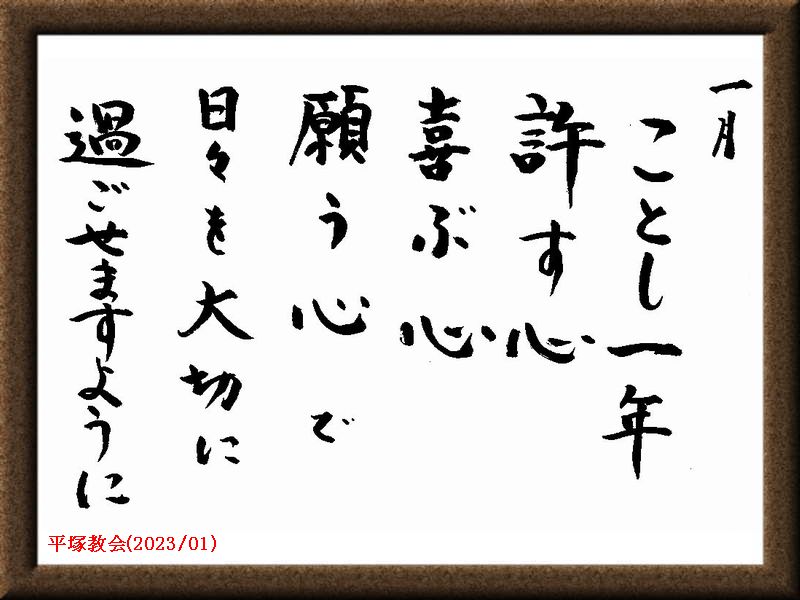 一月
ことし一年
許す心
喜ぶ心
願う心で
日々を大切に
過ごせますように
平塚教会(2023/01)